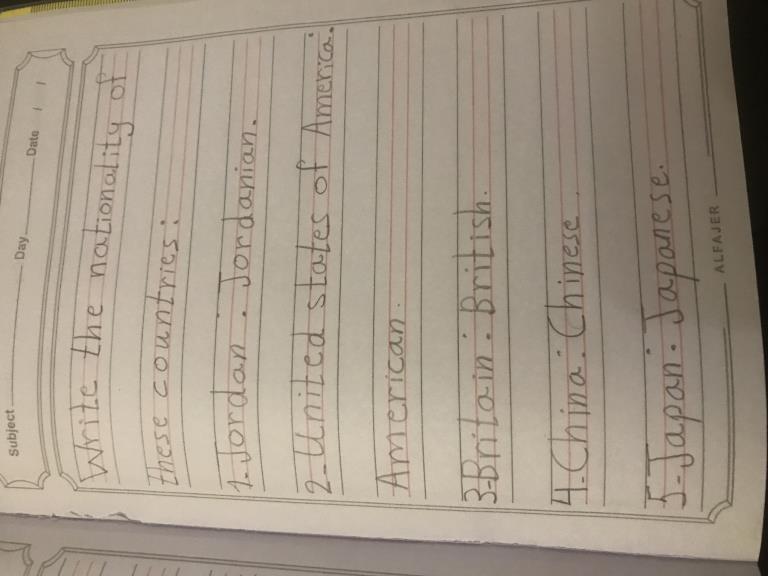 Subject Day Date / /
Write the nationality of
these countries:
1-Jordan: Jordanian.
2-United states of America:
American.
3-Britain: British.
4-China: Chinese.
5-Japan: Japanese.
ALFAJER